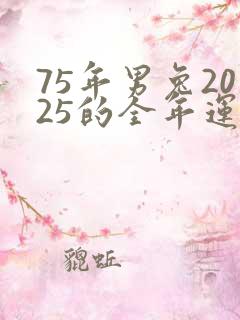 75年男兔20
25的全年運
貔蚯